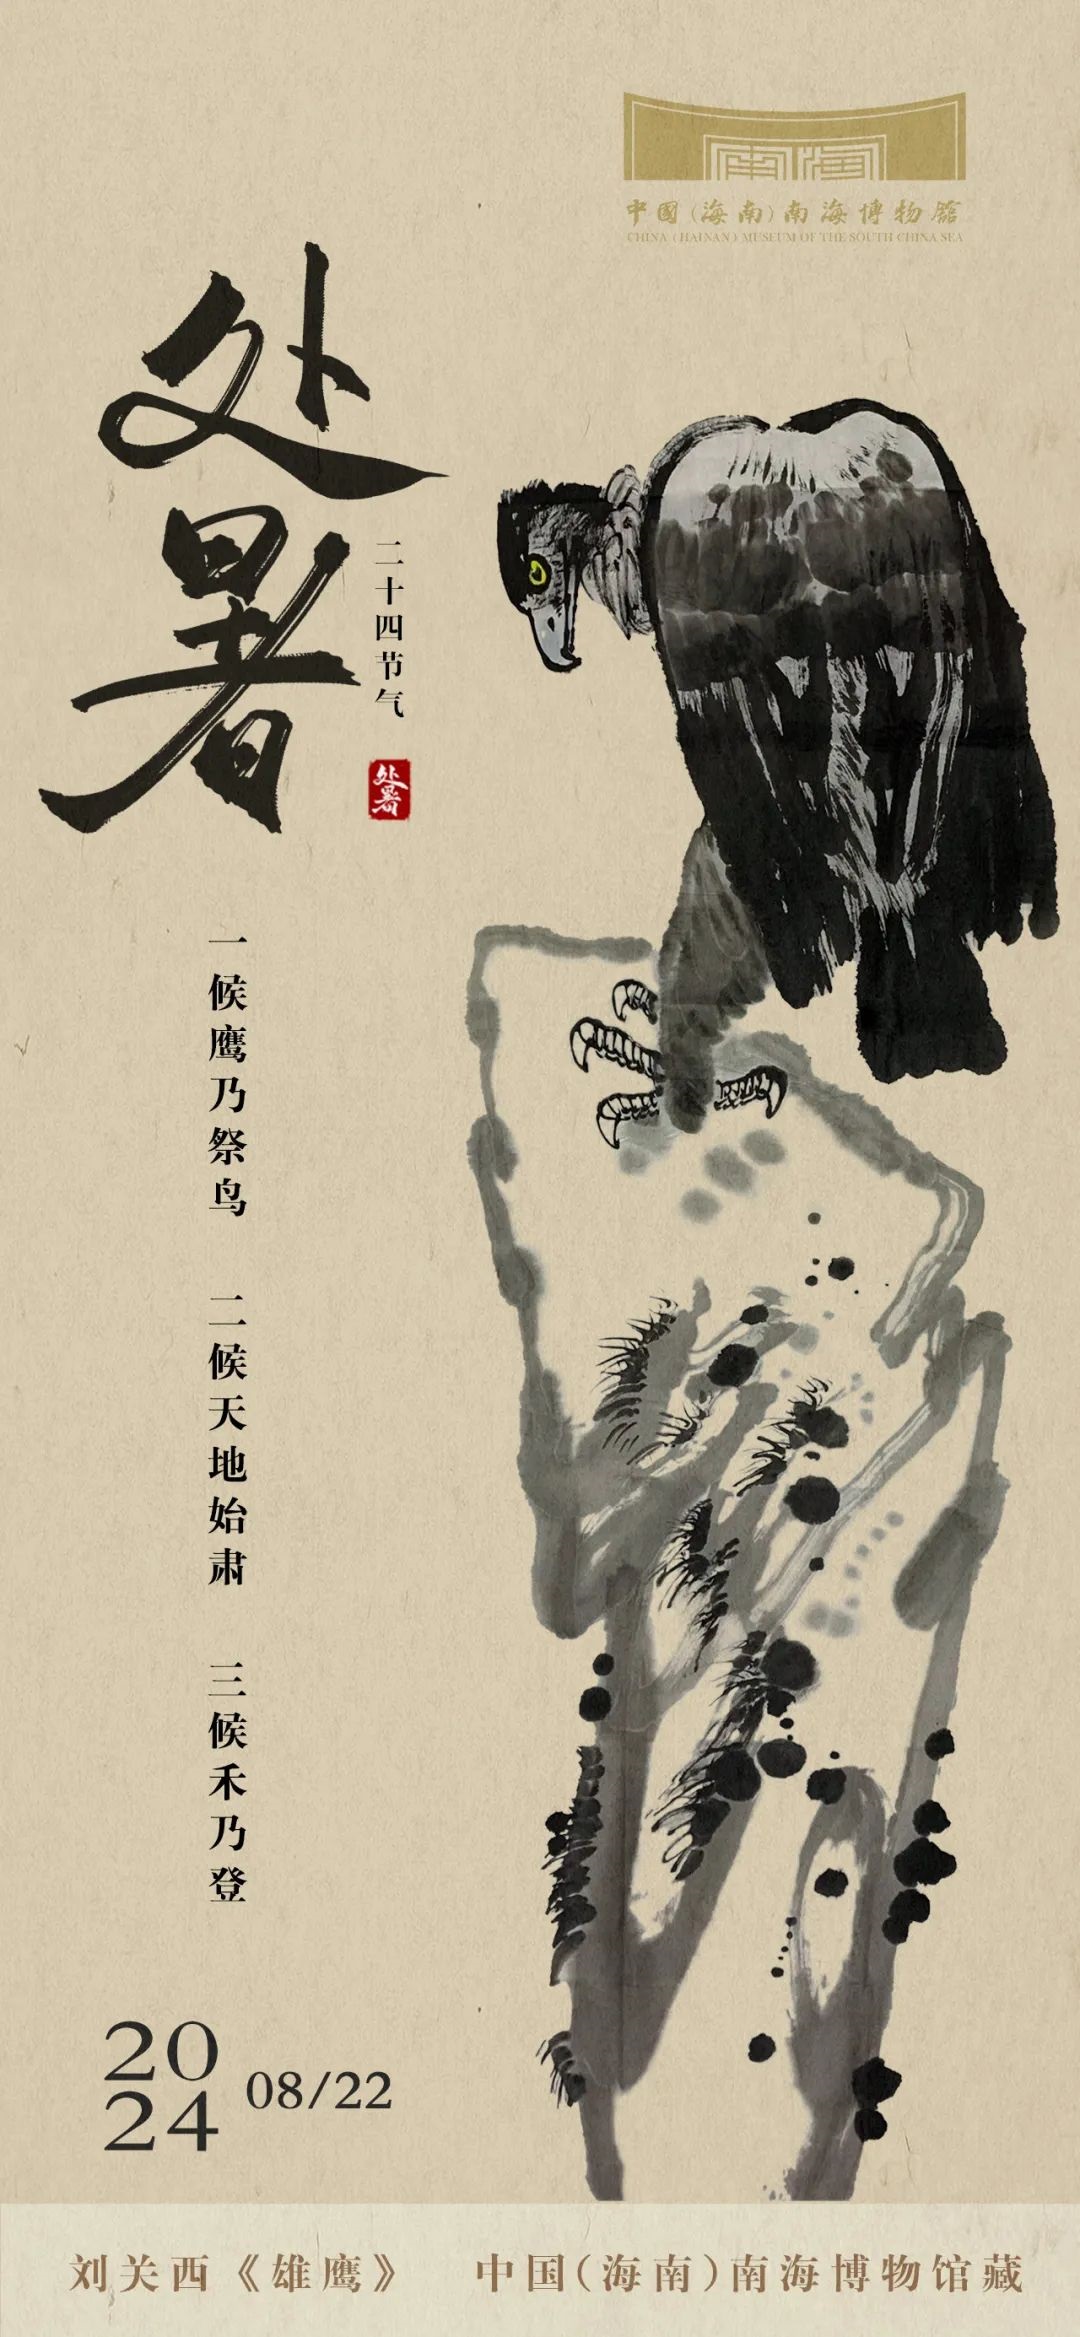 南海
中國(海南)南海博物館
CHINA (HAINAN) MUSEUM OF THE SOUTH CHINA SEA
处暑
二十四节气
处暑
一候鹰乃祭鸟
二候天地始肃
三候禾乃登
2024
08/22
刘关西《雄鹰》 中国(海南)南海博物馆藏